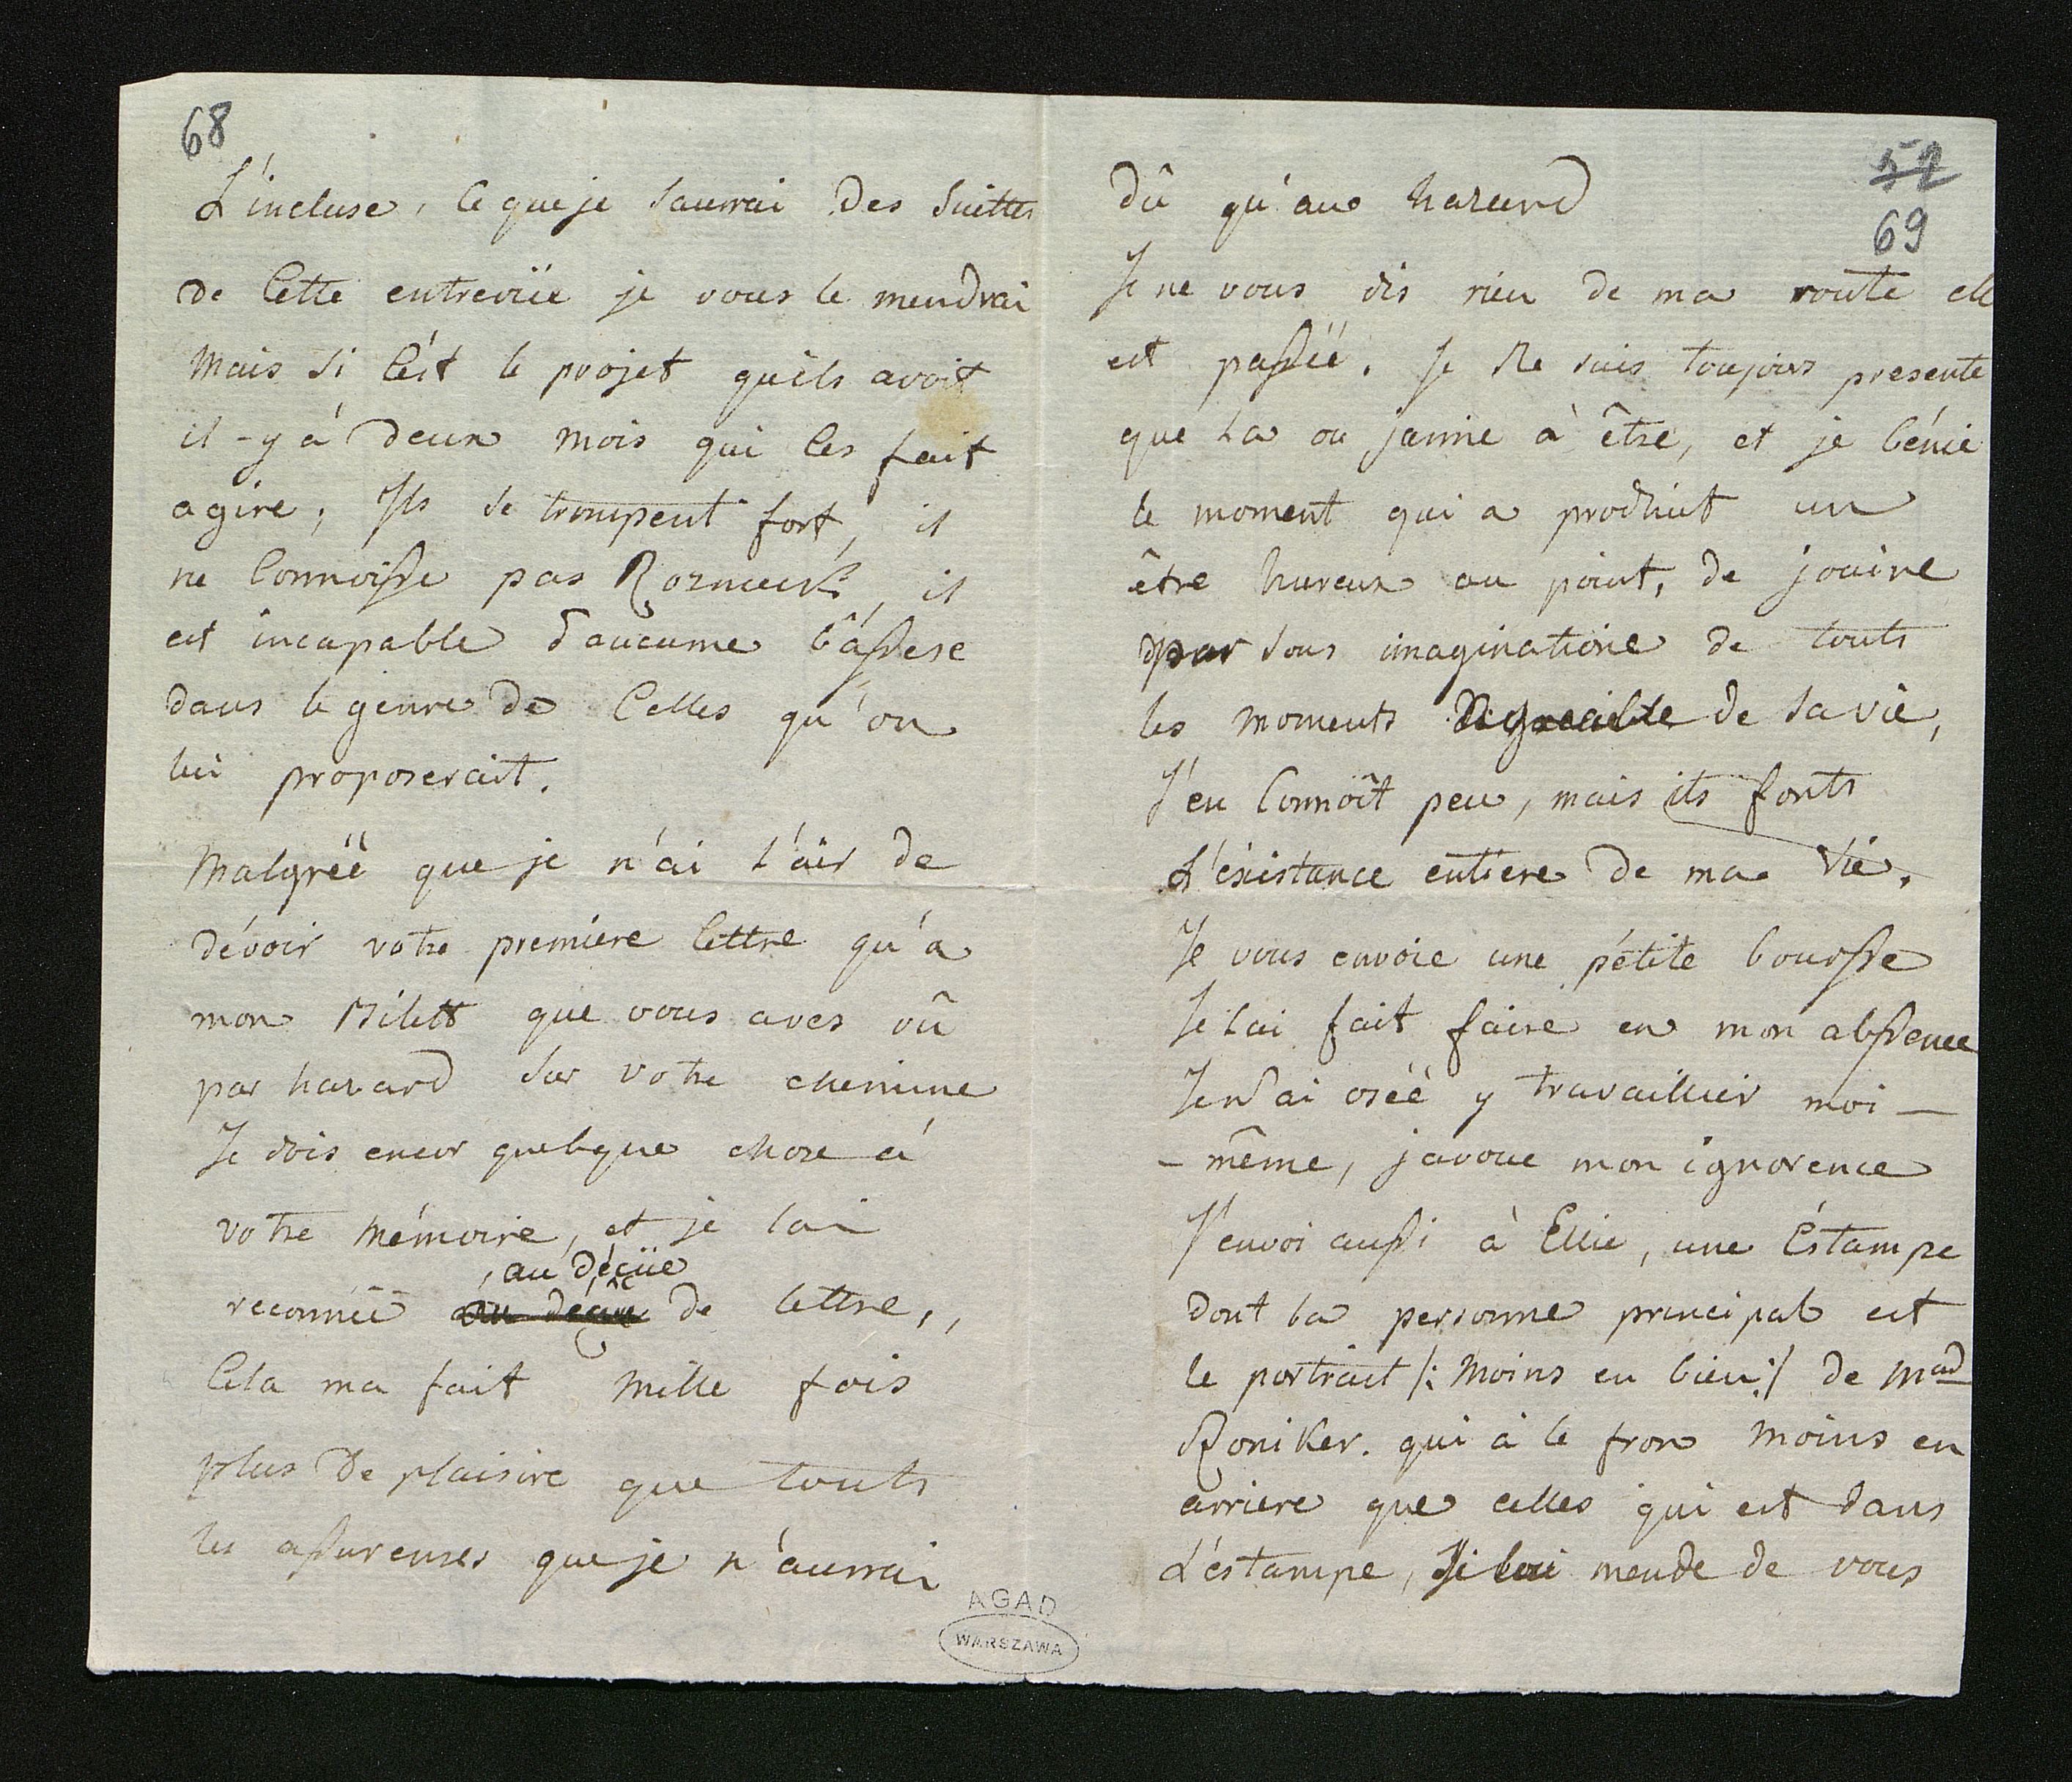 68
L'incluse, ce que je saurrai des suittes
de cette entrevüe je vous le mendrai
mais si c'est le projet qu'ils avoit
il-y á deux mois qui les fait
agire, Ils se trompent fort, il
ne connoisse pas Rozniecki, il
est incapable d'aucune bâssese
dans le genre de celles qu'on
lui proposerait.
Malgréé que je n'ai l'air de
dévoir votre premiere lettre qu'a
mon Bilett que vous aves vû
par hazard sur votre chemine
Je dois encor quelque chose á
votre mémoire, et je lai
au déçüe
reconnüe de lettre,,
Cela ma fait mille fois
plus de plaisire que touts
les assurenses que je n'aurrai
52
69
dû qu'au hazard
Je ne vous dis rien de ma route elle
est passéé. Je ne suis toujours presente
que la ou j'aime à être, et je bénie
le moment qui a produit un
être hureux au point, de jouire
par sous imaginatione de touts
les moments de sa vie,
J'en connoît peu, mais ils fonts
L'existance entiere de ma vie.
Je vous envoie une pétite boursse
Je lai fait faire en mon abssence
Je n'ai oséé y travaillier moi-
-même, j'avoue mon ignorence
J'envoi aussi à Elie, une Éstampe
dont la personne principal est
le portrait /: moins en bien :/ de Mad
Roniker. qui à le fron moins en
arriere que celles qui est dans
L'éstampe, Je lui mende de vous
AGAD
WARSZAWA